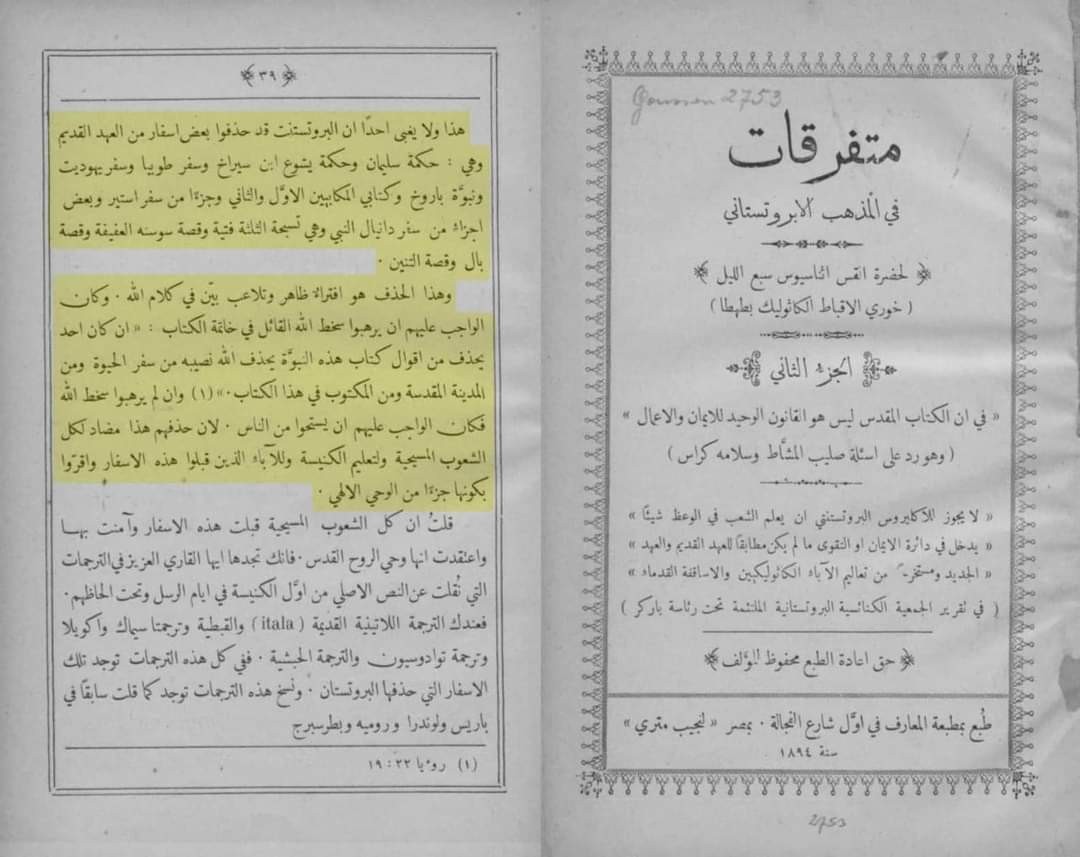 متفرقات
في المذهب الابروتستاني
لحضرة القس اثناسيوس سبع الليل
( خوري الاقباط الكاثوليك بطهطا )
الجزء الثاني
« في ان الكتاب المقدس ليس هو القانون الوحيد للايمان والاعمال »
( وهو رد على اسئلة صليب المشَّاط وسلامه كراس )
« لا يجوز للاكليروس البروتستنتي ان يعلم الشعب في الوعظ شيئًا »
« يدخل في دائرة الايمان او التقوى ما لم يكن مطابقًا للعهد القديم والعهد »
« الجديد من تعاليم الآباء الكاثوليكيين والاساقفة القدماء »
( في تقرير الجمعية الكنائسية البروتستانية الملتئمة تحت رئاسة باركر )
حق اعادة الطبع محفوظ للمؤلف
طُبع بمطبعة المعارف في اوَّل شارع الفجالة . بمصر « لنجيب متري »
سنة ١٨٩٤
2753
2753
٣٩
هذا ولا يغبى احدًا ان البروتستنت قد حذفوا بعض اسفار من العهد القديم
وهي : حكمة سليمان وحكمة يشوع ابن سيراخ وسفر طوبيا وسفر يهوديت
ونبوَّة باروخ وكتابي المكابيين الاوَّل والثاني وجزءًا من سفر استير وبعض
اجزاء من سفر دانيال النبي وهي تسبحة الثلثة فتية وقصة سوسنه العفيفة وقصة
بال وقصة التنين .
وهذا الحذف هو افتراءٌ ظاهر وتلاعب بيّن في كلام الله . وكان
الواجب عليهم ان يرهبوا سخط الله القائل في خاتمة الكتاب : « ان كان احد
يحذف من اقوال كتاب هذه النبوَّة يحذف الله نصيبه من سفر الحيوة ومن
المدينة المقدسة ومن المكتوب في هذا الكتاب .» (١) وان لم يرهبوا سخط الله
فكان الواجب عليهم ان يستحوا من الناس . لان حذفهم هذا مضاد لكل
الشعوب المسيحية ولتعليم الكنيسة وللآباء الذين قبلوا هذه الاسفار واقرّوا
بكونها جزءًا من الوحي الالهي .
قلتُ ان كل الشعوب المسيحية قبلت هذه الاسفار وآمنت بهـا
واعتقدت انها وحي الروح القدس . فانك تجدها ايها القاري العزيز في الترجمات
التي نُقلت عن النص الاصلي من اوَّل الكنيسة في ايام الرسل وتحت الحاظهم .
فعندك الترجمة اللاتينية القديمة ( itala ) والقبطية وترجمتا سيماك واكويلا
وترجمة توادوسيون والترجمة الحبشية . ففي كل هذه الترجمات توجد تلك
الاسفار التي حذفها البروتستان . ونسخ هذه الترجمات توجد كما قلت سابقًا في
باريس ولوندرا وروميه وبطرسبرج
(١) رويا ٢٢ : ١٩